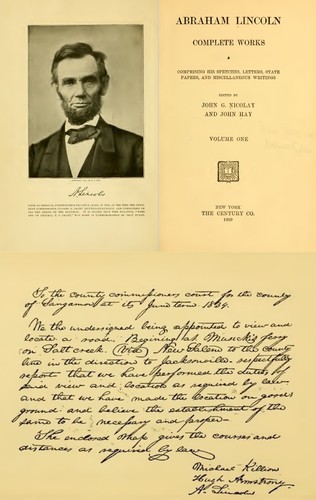 A. Lincoln
ABRAHAM LINCOLN
COMPLETE WORKS
COMPRISING HIS SPEECHES, LETTERS, STATE
PAPERS, AND MISCELLANEOUS WRITINGS
EDITED BY
JOHN G. NICOLAY
AND JOHN HAY
VOLUME ONE
NEW YORK
THE CENTURY CO.
To the county commissioners court for the county
of Sangamon at its June term 1834.
We the undersigned being appointed to view and
locate a road, Beginning at Musick's ferry
on Salt creek, (Via) New Salem to the county
line in the direction to Jacksonville, respectfully
report that we have performed the duties of
said view and location as required by law
and that we have made the location on good
ground and believe the establishment of the
same to be necessary and proper.
The enclosed map gives the courses and
distances as required by law
Michael Killion
Hugh Armstrong
A. Lincoln